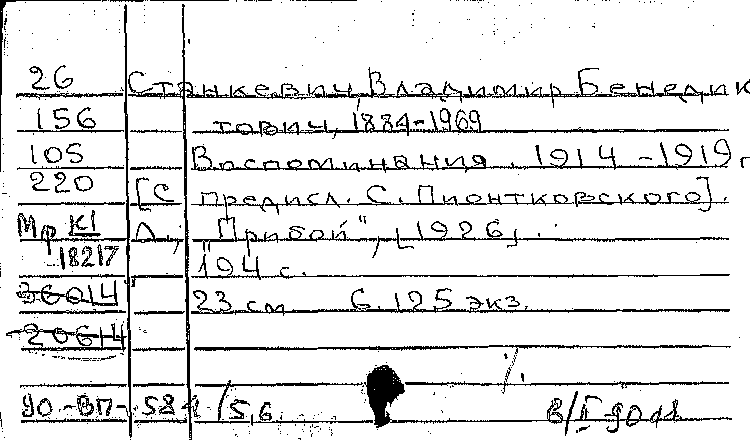 26 Станкевич, Владимир Бенедик
156 тович, 1884-1969
105 Воспоминания. 1914-1919 г
220 [С предисл. С. Пионтковского].
Мр К1 Л., "Прибой", [1926].
18217 194 с.
36014 23 см 6.125 экз.
20614
90-ВП-